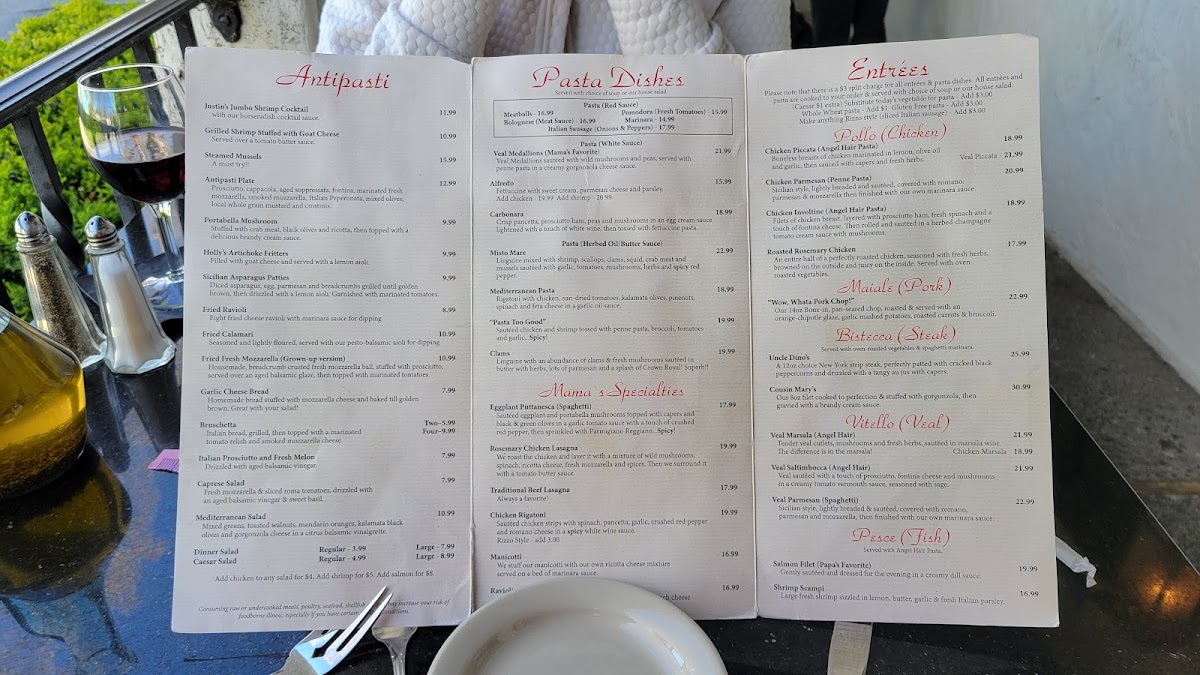 Antipasti
Justin's Jumbo Shrimp Cocktail 11.99
with our horseradish cocktail sauce.
Grilled Shrimp Stuffed with Goat Cheese 10.99
Served over a tomato butter sauce.
Steamed Mussels 15.99
A must try!!
Antipasti Plate 12.99
Prosciutto, cappacola, aged soppressata, fontina, marinated fresh
mozzarella, smoked mozzarella, Italian Peperonata, mixed olives,
local whole grain mustard and crostinis.
Portabella Mushroom 9.99
Stuffed with crab meat, black olives and ricotta, then topped with a
delicious brandy cream sauce.
Holly's Artichoke Fritters 9.99
Filled with goat cheese and served with a lemon aioli.
Sicilian Asparagus Patties 9.99
Diced asparagus, egg, parmesan and breadcrumbs grilled until golden
brown, then drizzled with a lemon aioli. Garnished with marinated tomatoes.
Fried Ravioli 8.99
Eight fried cheese ravioli with marinara sauce for dipping
Fried Calamari 10.99
Seasoned and lightly floured, served with our pesto-balsamic aioli for dipping
Fried Fresh Mozzarella (Grown-up version) 10.99
Housemade, breadcrumb crusted fresh mozzarella ball, stuffed with prosciutto,
served over an aged balsamic glaze, then topped with marinated tomatoes.
Garlic Cheese Bread 7.99
Homemade bread stuffed with mozzarella cheese and baked till golden
brown. Great with your salad!
Bruschetta Two-5.99
Italian bread, grilled, then topped with a marinated Four-9.99
tomato relish and smoked mozzarella cheese.
Italian Prosciutto and Fresh Melon 7.99
Drizzled with aged balsamic vinegar.
Caprese Salad 7.99
Fresh mozzarella & sliced roma tomatoes, drizzled with
an aged balsamic vinegar & sweet basil.
Mediterranean Salad 10.99
Mixed greens, toasted walnuts, mandarin oranges, kalamata black
olives and gorgonzola cheese in a citrus balsamic vinaigrette.
Dinner Salad Regular - 3.99 Large - 7.99
Caesar Salad Regular - 4.99 Large - 8.99
Add chicken to any salad for $4. Add shrimp for $5. Add salmon for $8.
Consuming raw or undercooked meats, poultry, seafood, shellfish may increase your risk of
foodborne illness, especially if you have certain conditions.
Pasta Dishes
Served with choice of soup or our house salad
Pasta (Red Sauce)
Meatballs - 16.99 Pomodora (Fresh Tomatoes) - 15.99
Bolognese (Meat Sauce) - 16.99 Marinara - 14.99
Italian Sausage (Onions & Peppers) - 17.99
Pasta (White Sauce)
Veal Medallions (Mama's Favorite) 21.99
Veal Medallions sautéed with wild mushrooms and peas, served with
penne pasta in a creamy gorgonzola cheese sauce.
Alfredo 15.99
Fettuccine with sweet cream, parmesan cheese and parsley.
Add chicken - 19.99 Add shrimp - 20.99
Carbonara 18.99
Crisp pancetta, prosciutto ham, peas and mushrooms in an egg cream sauce
lightened with a touch of white wine, then tossed with fettuccine pasta.
Pasta (Herbed Oil/Butter Sauce)
Misto Mare 22.99
Linguine mixed with shrimp, scallops, clams, squid, crab meat and
mussels sautéed with garlic, tomatoes, mushrooms, herbs and spicy red
pepper.
Mediterranean Pasta 18.99
Rigatoni with chicken, sun-dried tomatoes, kalamata olives, pinenuts,
spinach and feta cheese in a garlic oil sauce.
"Pasta Too Good" 19.99
Sautéed chicken and shrimp tossed with penne pasta, broccoli, tomatoes
and garlic...Spicy!
Clams 19.99
Linguine with an abundance of clams & fresh mushrooms sautéed in
butter with herbs, lots of parmesan and a splash of Crown Royal! Superb!!
Mama's Specialties
Eggplant Puttanesca (Spaghetti) 17.99
Sautéed eggplant and portabella mushrooms topped with capers and
black & green olives in a garlic tomato sauce with a touch of crushed
red pepper, then sprinkled with Parmigiano-Reggiano...Spicy!
Rosemary Chicken Lasagna 19.99
We roast the chicken and layer it with a mixture of wild mushrooms,
spinach, ricotta cheese, fresh mozzarella and spices. Then we surround it
with a tomato butter sauce.
Traditional Beef Lasagna 17.99
Always a favorite!
Chicken Rigatoni 19.99
Sautéed chicken strips with spinach, pancetta, garlic, crushed red pepper
and romano cheese in a spicy white wine sauce.
Rizzo Style - add 3.00
Manicotti 16.99
We stuff our manicotti with our own ricotta cheese mixture
served on a bed of marinara sauce.
Ravioli 16.99
cheese
Entrées
Please note that there is a $3 split charge for all entrées & pasta dishes. All entrées and
pasta are cooked to your order & served with choice of soup or our house salad.
(Caesar $1 extra) Substitute today's vegetable for pasta - Add $3.00
Whole Wheat pasta - Add $1 Gluten Free pasta - Add $3.00
Make anything Rizzo style (sliced Italian sausage) Add $3.00
Pollo (Chicken)
Chicken Piccata (Angel Hair Pasta) 18.99
Boneless breasts of chicken marinated in lemon, olive oil
and garlic, then sauced with capers and fresh herbs. Veal Piccata 21.99
Chicken Parmesan (Penne Pasta) 20.99
Sicilian style, lightly breaded and sautéed, covered with romano,
parmesan & mozzarella then finished with our own marinara sauce.
Chicken Involtine (Angel Hair Pasta) 18.99
Filets of chicken breast, layered with prosciutto ham, fresh spinach and a
touch of fontina cheese. Then rolled and sautéed in a herbed champagne
tomato cream sauce with mushrooms.
Roasted Rosemary Chicken 17.99
An entire half of a perfectly roasted chicken, seasoned with fresh herbs,
browned on the outside and juicy on the inside. Served with oven
roasted vegetables.
Maiale (Pork)
"Wow, Whata Pork Chop!" 22.99
Our 14oz Bone-in, pan-seared chop, roasted & served with an
orange-chipotle glaze, garlic mashed potatoes, roasted carrots & broccoli.
Bistecca (Steak)
Served with oven-roasted vegetables & spaghetti marinara.
Uncle Dino's 25.99
A 12oz choice New York strip steak, perfectly patted with cracked black
peppercorns and drizzled with a tangy au jus with capers.
Cousin Mary's 30.99
Our 8oz filet cooked to perfection & stuffed with gorgonzola, then
gravied with a brandy cream sauce.
Vitello (Veal)
Veal Marsala (Angel Hair) 21.99
Tender veal cutlets, mushrooms and fresh herbs, sautéed in marsala wine.
The difference is in the marsala! Chicken Marsala 18.99
Veal Saltimbocca (Angel Hair) 21.99
Veal sautéed with a touch of prosciutto, fontina cheese and mushrooms
in a creamy tomato vermouth sauce, seasoned with sage.
Veal Parmesan (Spaghetti) 22.99
Sicilian style, lightly breaded & sautéed, covered with romano,
parmesan and mozzarella, then finished with our own marinara sauce.
Pesce (Fish)
Served with Angel Hair Pasta.
Salmon Filet (Papa's Favorite) 19.99
Gently sautéed and dressed for the evening in a creamy dill sauce.
Shrimp Scampi 16.99
Large fresh shrimp sizzled in lemon, butter, garlic & fresh Italian parsley.